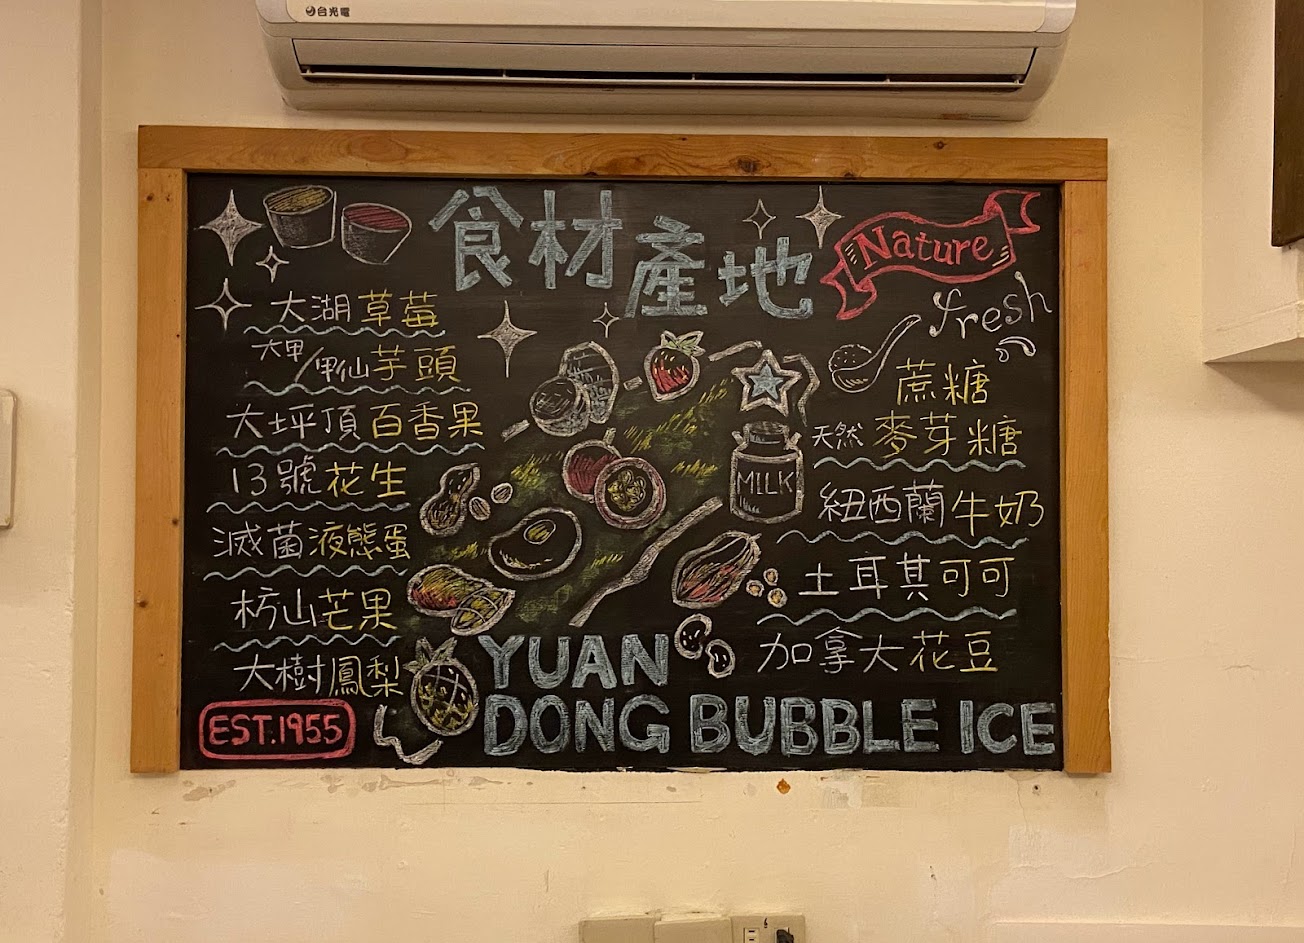 台光電
食材產地
Nature
fresh
大湖草莓
大甲/甲仙芋頭
大坪頂百香果
13號花生
滅菌液態蛋
枋山芒果
大樹鳳梨
EST.1955
MILK
蔗糖
天然麥芽糖
紐西蘭牛奶
土耳其可可
加拿大花豆
YUAN
DONG BUBBLE ICE